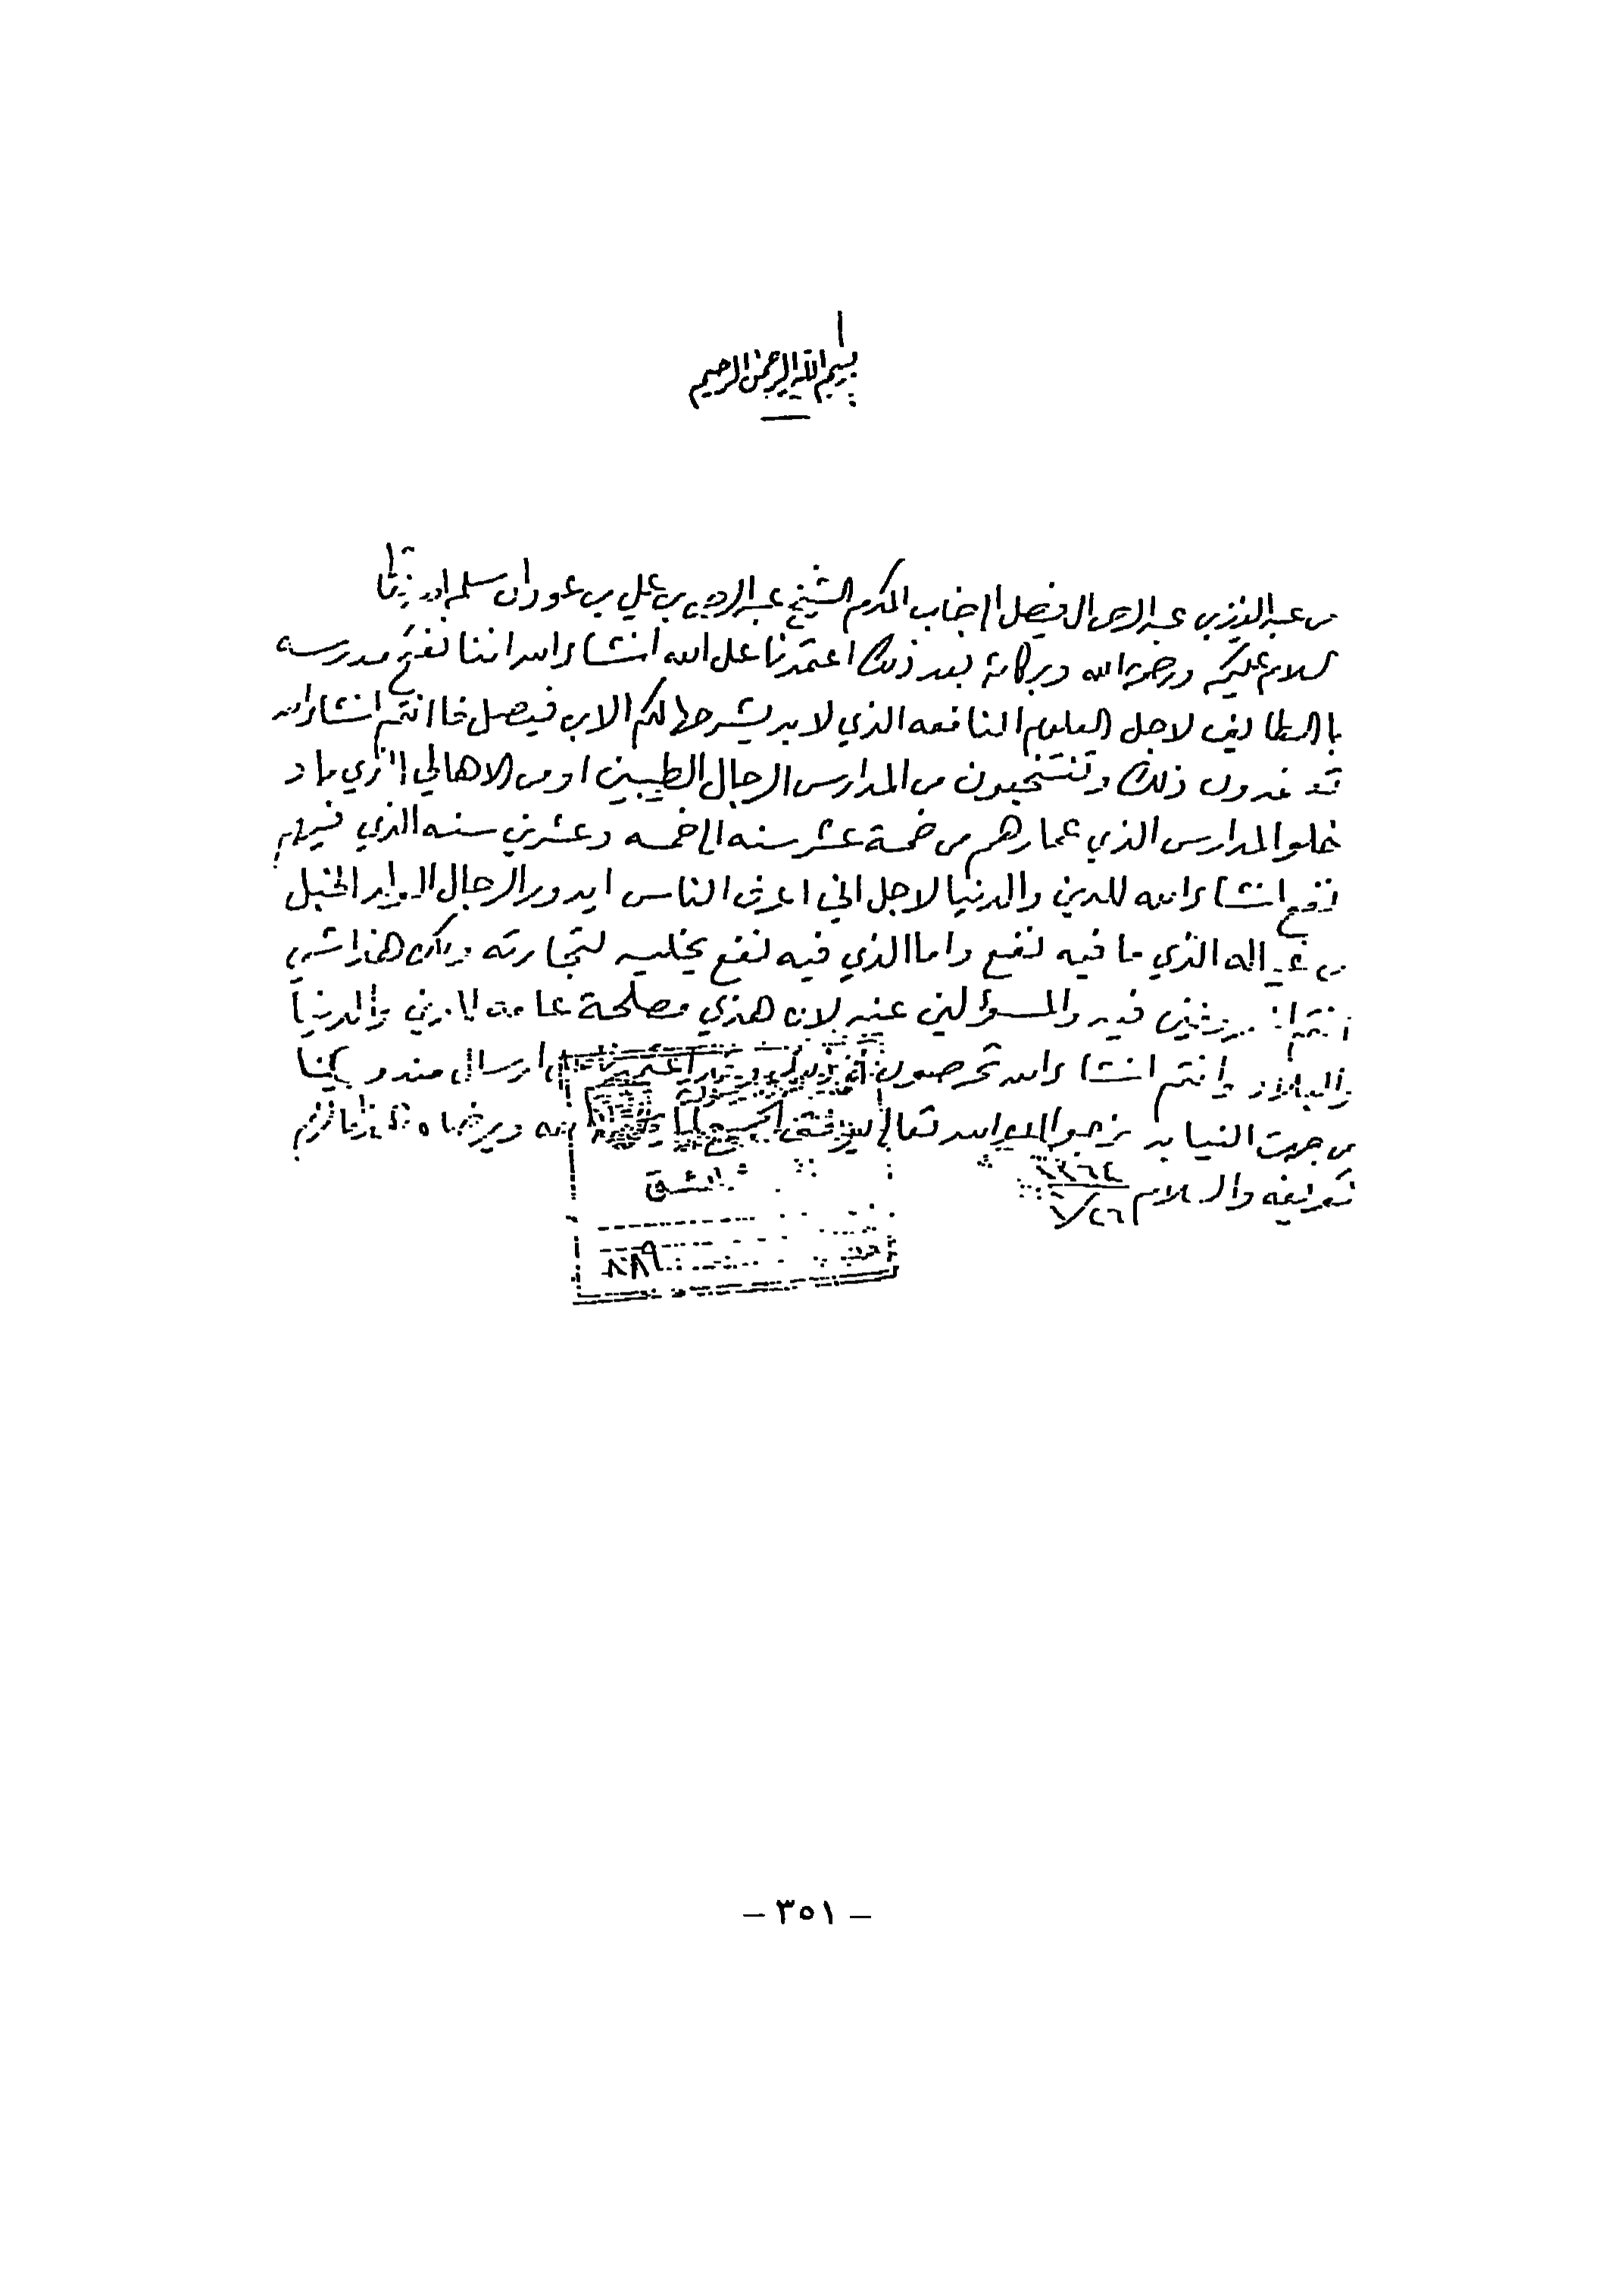 بسم الله الرحمن الرحيم
من عبد العزيز بن عبد الرحمن ال فيصل الى جناب المكرم الشيخ بن علي بن عودان سلمه الله تعالى
السلام عليكم ورحمة الله وبركاته بعد ذلك اعتمدنا على الله انشاء الله اننا نفتح مدرسه
با الطائف لاجل العلوم النافعه الذي لا بد يشرحها لكم الابن فيصل فا انتم انشاء الله
ذلك وتنتخبون من المدارس الرجال الطيبين او من الاهالي الذي ما د
خلو المدارس الذي عمارهم من خمسة عشر سنه الى خمسه وعشرين سنه الذي فيهم
نفع انشاء الله للدين والدنيا لاجل اني اعرف الناس ايدور الرجال الخبل
من عياله الذي ما فيه نفع واما الذي فيه نفع يخليه لتجارته ولكن هذا شيء
انتم فيه والمسؤلين عنه لان هذي مصلحة عامه للدين والدنيا
والبلاد وانتم انشاء الله تحرصون اعتمدنا ارسال مندوبينا
من جهت النيابه نرجوا الله تعالى يوفق الجميع لما ورضاه هذا ما لزم
تعريفه والسلام
١٣٦٤
٨٨٩
– ٣٥١ –